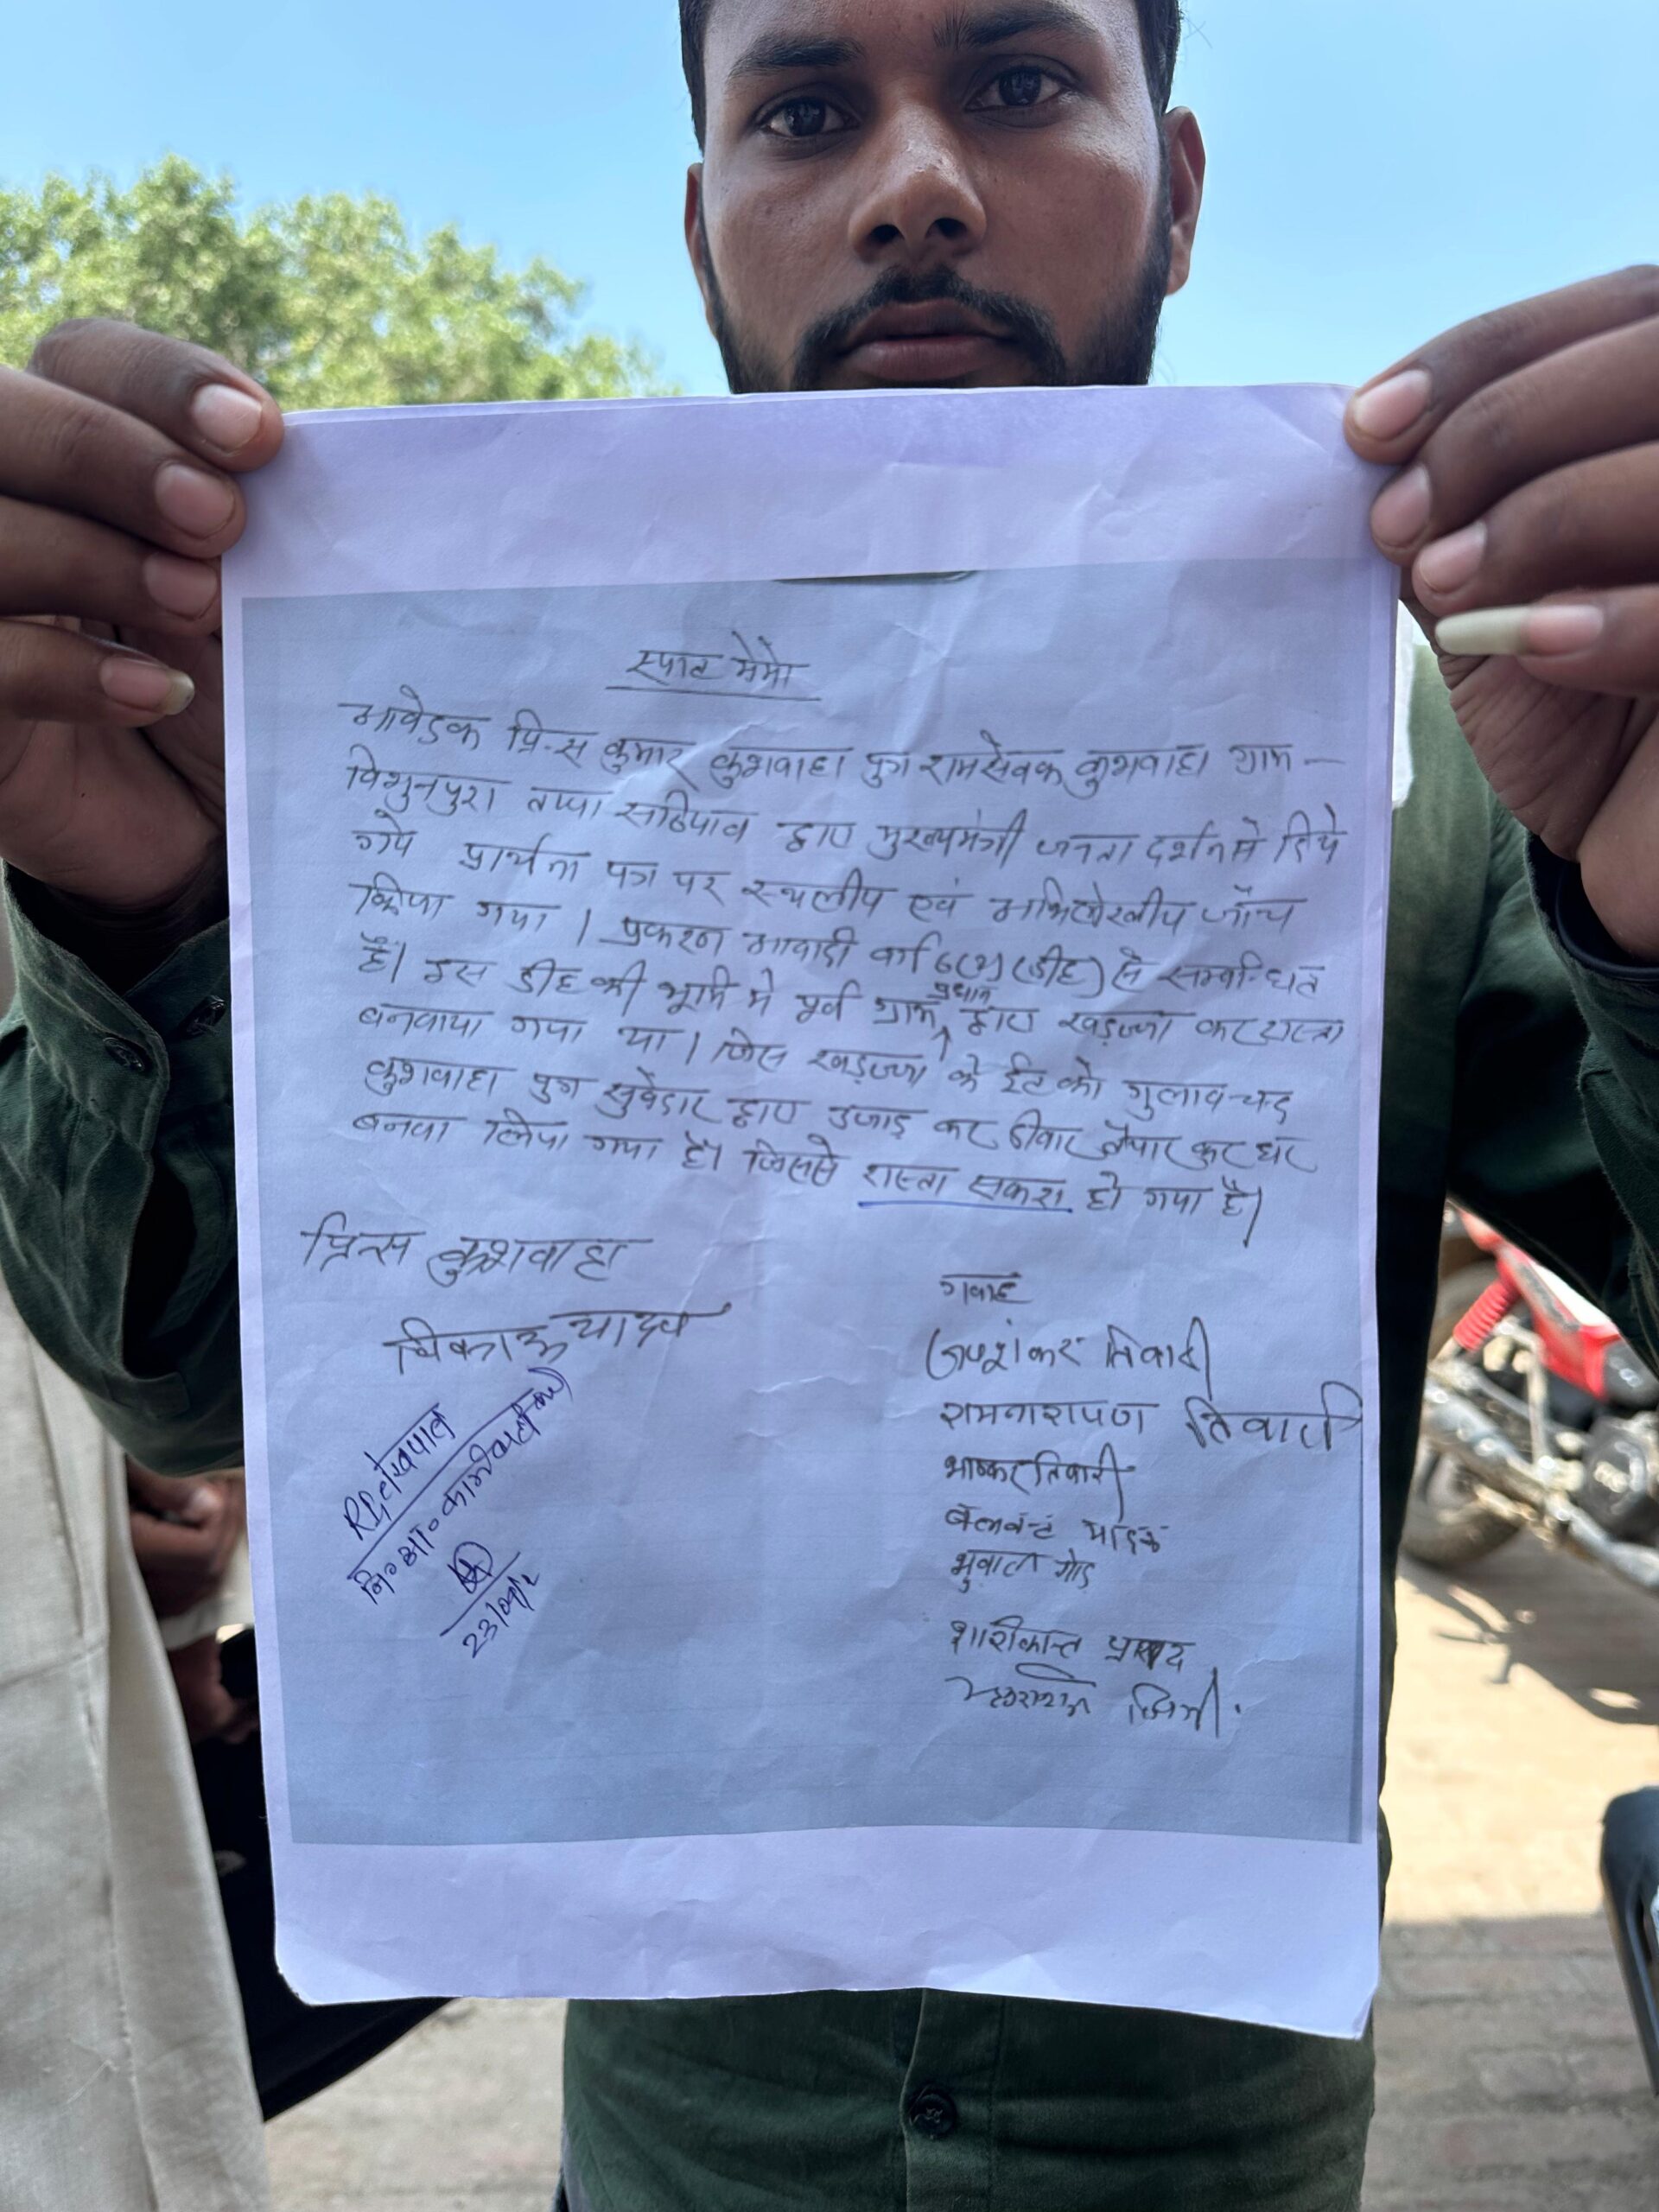 स्पाट मेमो
आवेदक प्रिन्स कुमार कुशवाहा पुत्र रामसेवक कुशवाहा ग्राम -
विशुनपुरा तप्पा सठियाव द्वारा मुख्यमंत्री जनता दर्शन मे दिये
गये प्रार्थना पत्र पर स्थलीय एवं अभिलेखीय जाँच
किया गया । प्रकरण आबादी वर्ग 6(2) (डीह) से सम्बन्धित
है। इस डीह की भूमि मे पूर्व ग्राम प्रधान द्वारा खड़ज्जा कर रास्ता
बनवाया गया था । जिस खड़ज्जा के ईट को गुलाबचन्द
कुशवाहा पुत्र सुवेदार द्वारा उजाड़ कर दीवार तैयार कर घर
बनवा लिया गया है। जिससे रास्ता सकरा हो गया है।
प्रिन्स कुशवाहा
यादव
गवाह
जयशंकर तिवारी
रामनारायण तिवारी
भाष्कर तिवारी
भुवाल गोड़
प्रसाद
लेखपाल
23/09/2